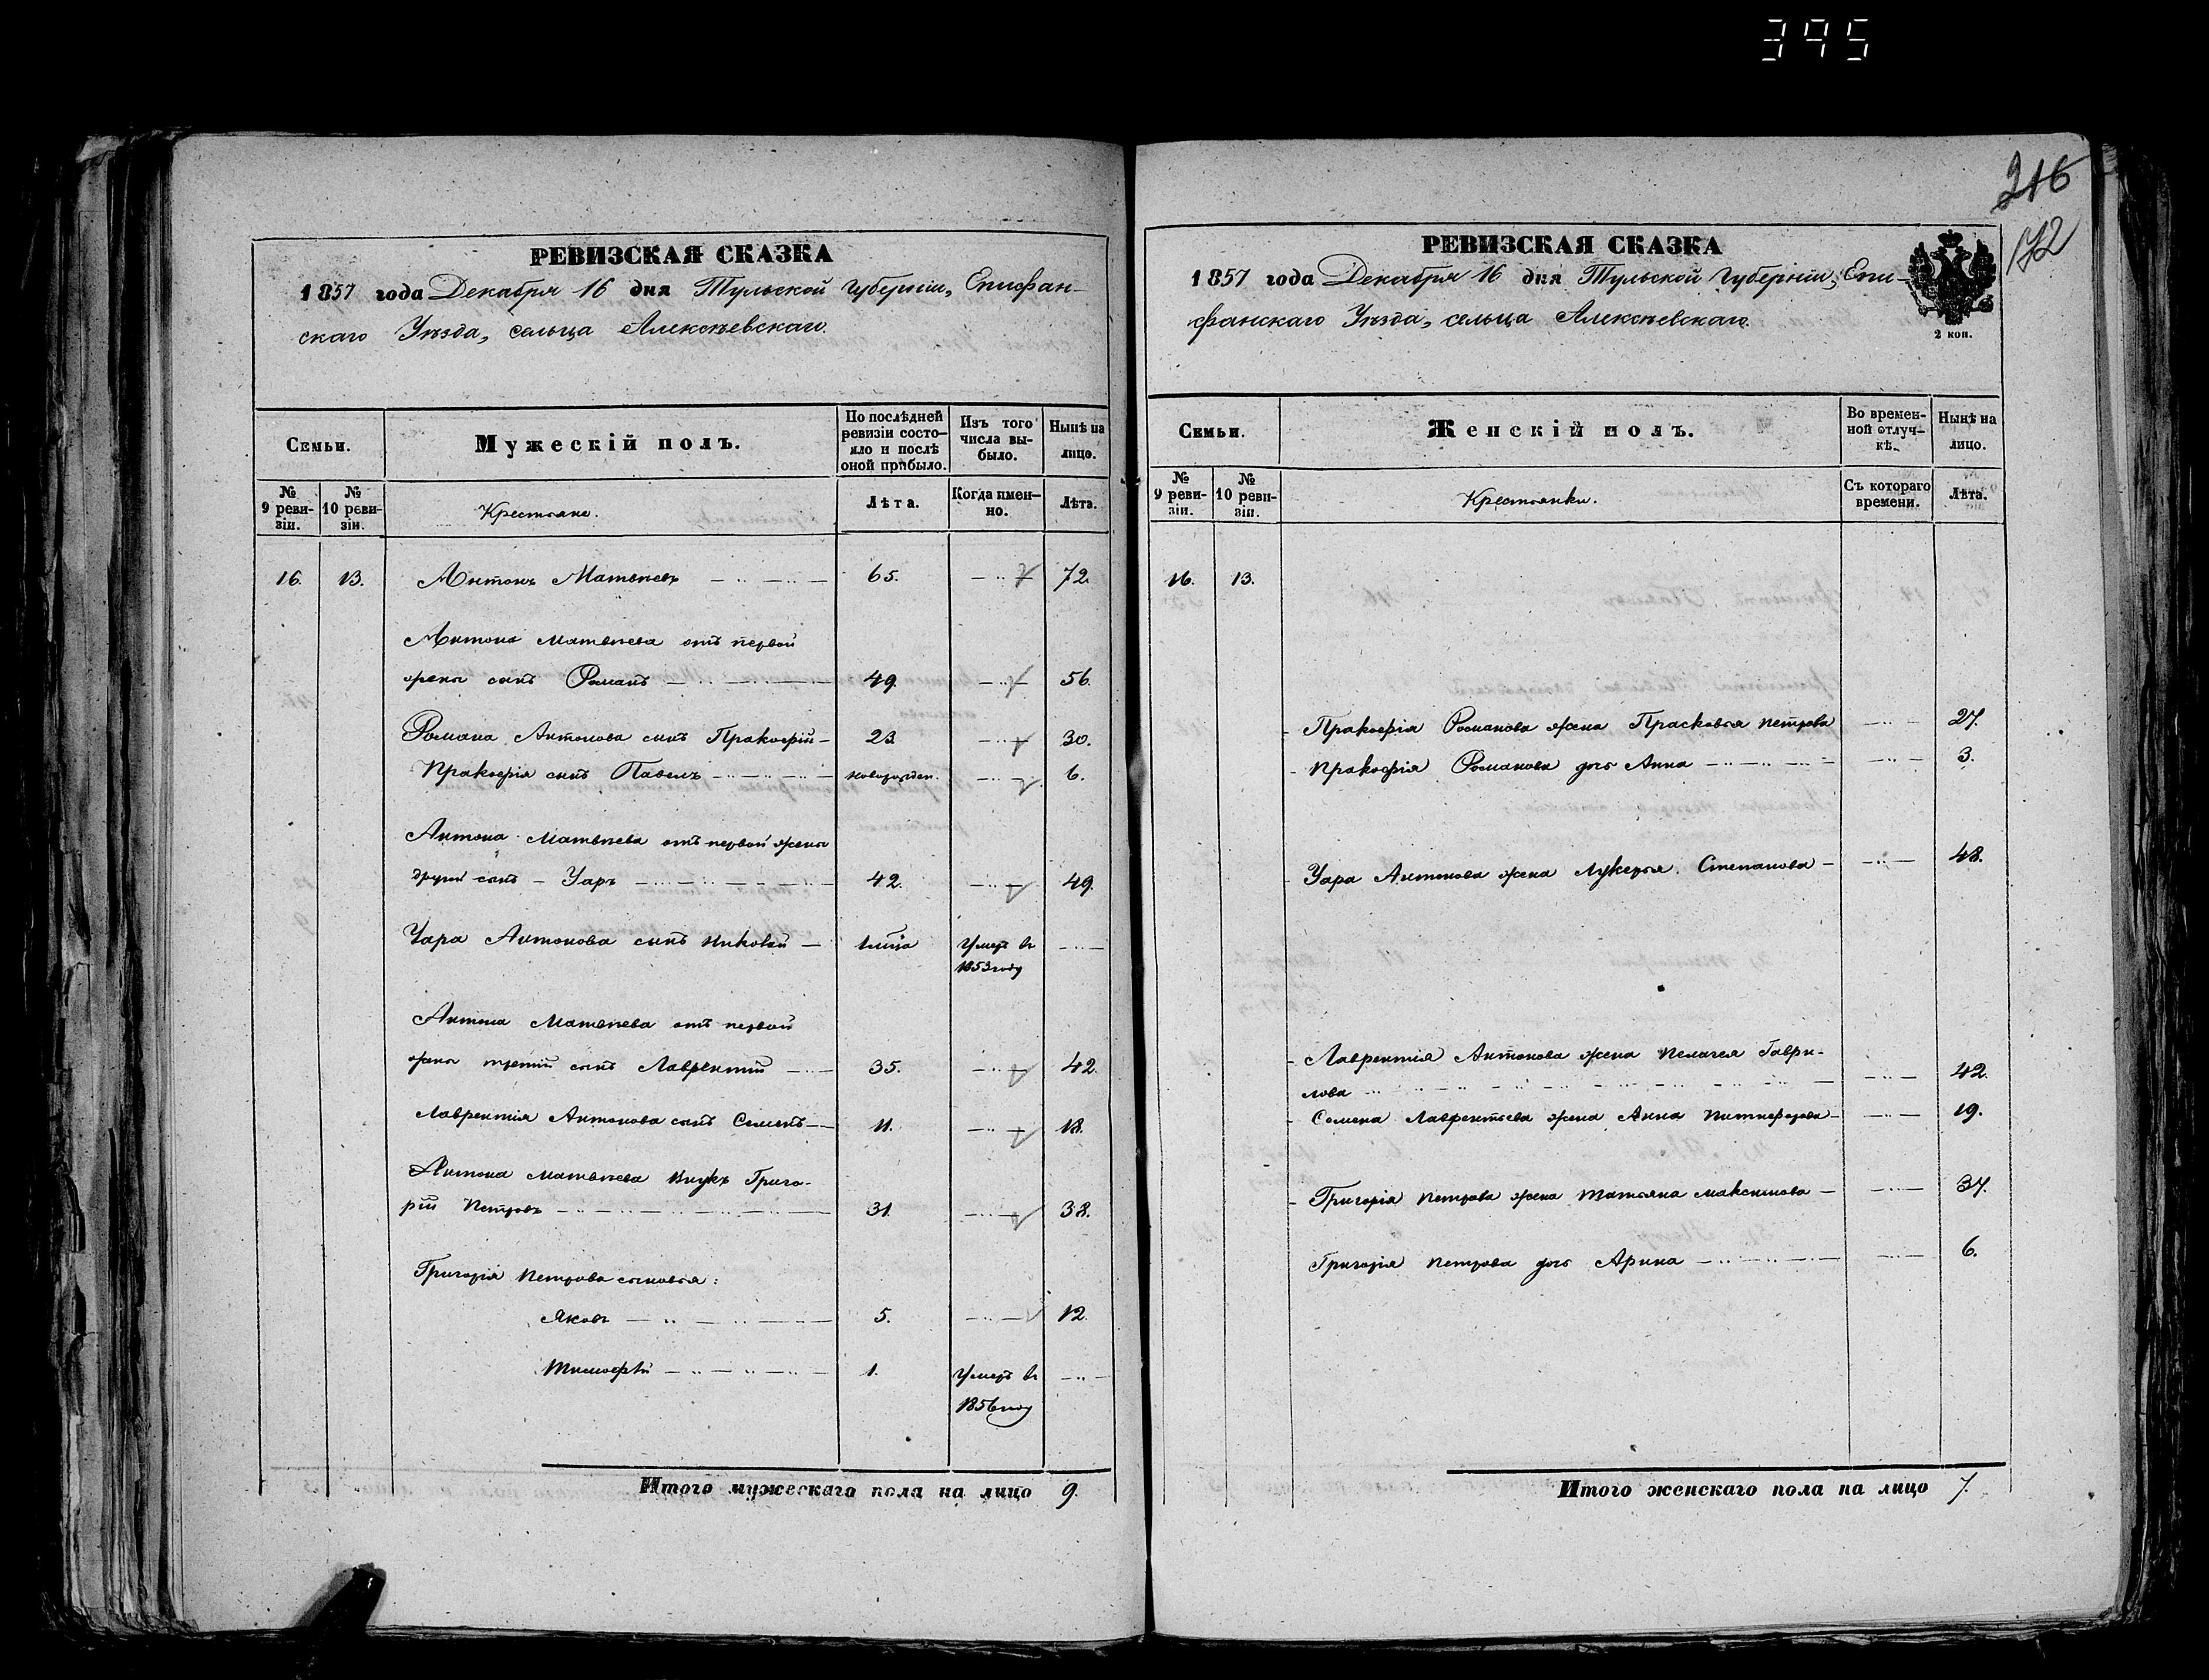 395
РЕВИЗСКАЯ СКАЗКА
1857 года Декабря 16 дня Тульской Губерніи, Епифан-
скаго Уѣзда, сельца Алексѣевскаго.
Семьи.
Мужескій полъ.
По послѣдней ревизіи состо-яло и послѣ оной прибыло.
Изъ того числа вы-было.
Нынѣ на лицо.
№ 9 реви-зіи.
№ 10 реви-зіи.
Крестьяне.
Лѣта.
Когда имен-но.
Лѣта.
16. 13. Антонъ Матвѣевъ 65. 72.
Антона Матвѣева отъ первой
жены сынъ Романъ 49. 56.
Романа Антонова сынъ Прокофій 23. 30.
Прокофія сынъ Павелъ новорожден. 6.
Антона Матвѣева отъ первой жены
другой сынъ Уаръ 42. 49.
Уара Антонова сынъ Умеръ въ
1853 году
Антона Матвѣева отъ первой
жены третій сынъ Лаврентій 35. 42.
Лаврентія Антонова сынъ Семенъ 11. 18.
Антона Матвѣева внукъ Григо-
рій Петровъ 31. 38.
Григорія Петрова сыновья:
Яковъ 5. 12.
Тимофѣй 1. Умеръ въ
1856 году
Итого мужескаго пола на лицо 9.
216
172
РЕВИЗСКАЯ СКАЗКА
1857 года Декабря 16 дня Тульской Губерніи, Епи-
фанскаго Уѣзда, сельца Алексѣевскаго.
2 коп.
Семьи.
Женскій полъ.
Во времен-ной отлуч-кѣ.
Нынѣ на лицо.
№ 9 реви-зіи.
№ 10 реви-зіи.
Крестьянки.
Съ котораго времени.
Лѣта.
16. 13.
Прокофія Романова жена Прасковья Петрова 27.
Прокофія Романова дочь Анна 3.
Уара Антонова жена Лукерья Степанова 48.
Лаврентія Антонова жена Пелагея Гаври-
лова 42.
Семена Лаврентьева жена Анна 19.
Григорія Петрова жена Татьяна Максимова 37.
Григорія Петрова дочь Арина 6.
Итого женскаго пола на лицо 7.